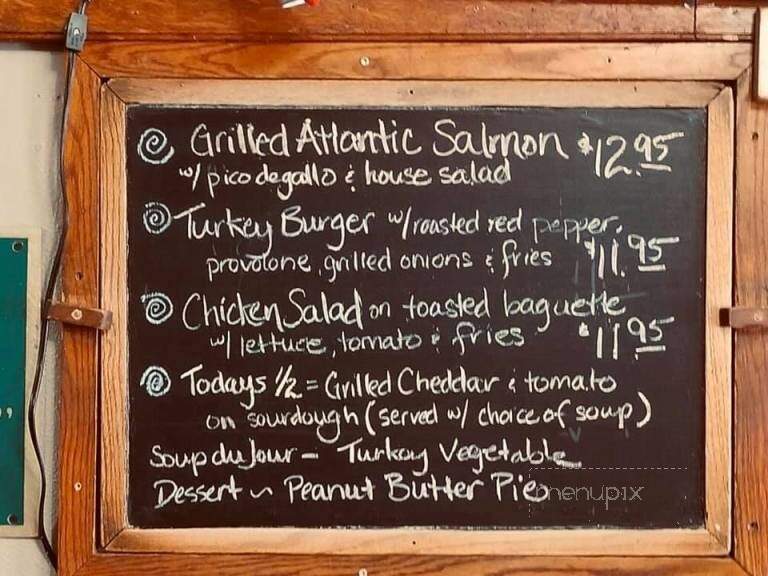 Grilled Atlantic Salmon $12.95
w/ pico de gallo & house salad
Turkey Burger w/ roasted red pepper,
provolone, grilled onions & fries $11.95
Chicken Salad on toasted baguette
w/ lettuce, tomato & fries $11.95
Todays 1/2 = Grilled Cheddar & tomato
on sourdough (served w/ choice of soup)
Soup du Jour - Turkey Vegetable
Dessert ~ Peanut Butter Pie
menupix